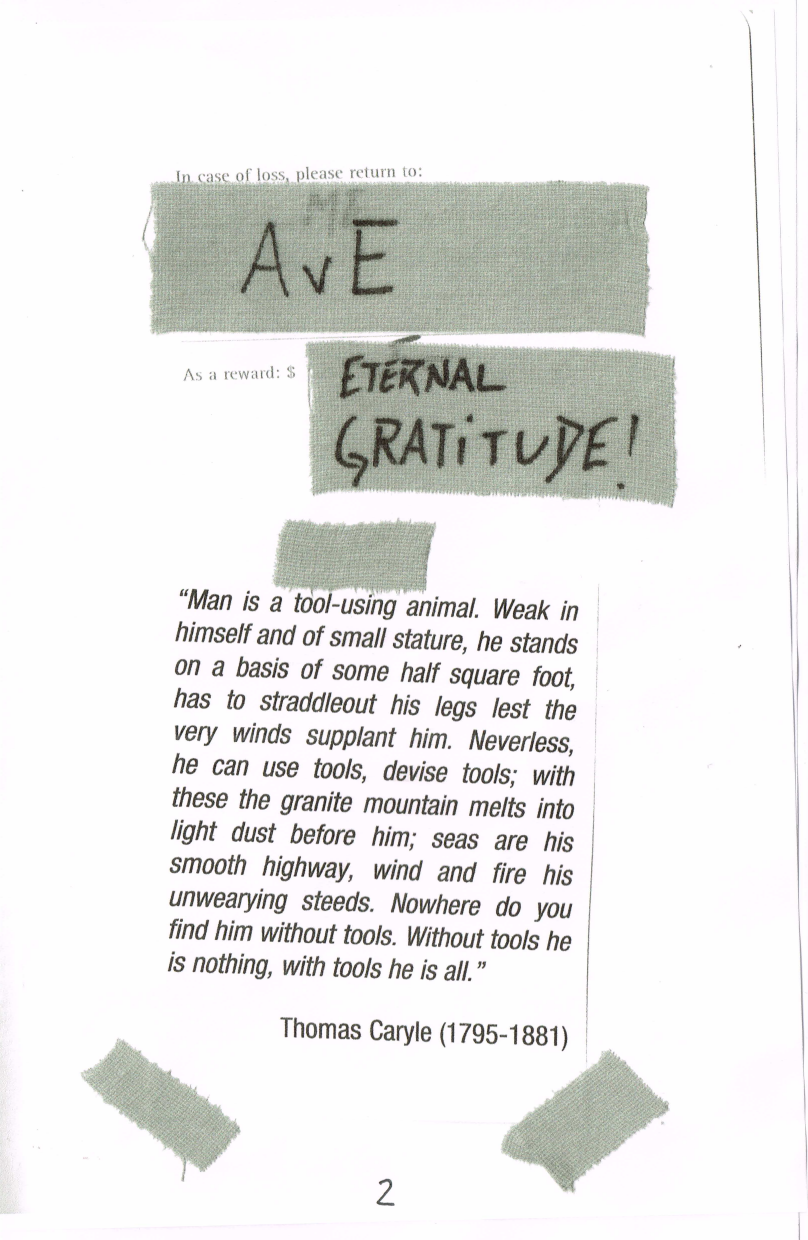 In case of loss, please return to:
ME
AvE
As a reward: $
ETERNAL
GRATiTUDE!
“Man is a tool-using animal. Weak in
himself and of small stature, he stands
on a basis of some half square foot,
has to straddleout his legs lest the
very winds supplant him. Neverless,
he can use tools, devise tools; with
these the granite mountain melts into
light dust before him; seas are his
smooth highway, wind and fire his
unwearying steeds. Nowhere do you
find him without tools. Without tools he
is nothing, with tools he is all.”
Thomas Caryle (1795-1881)
2